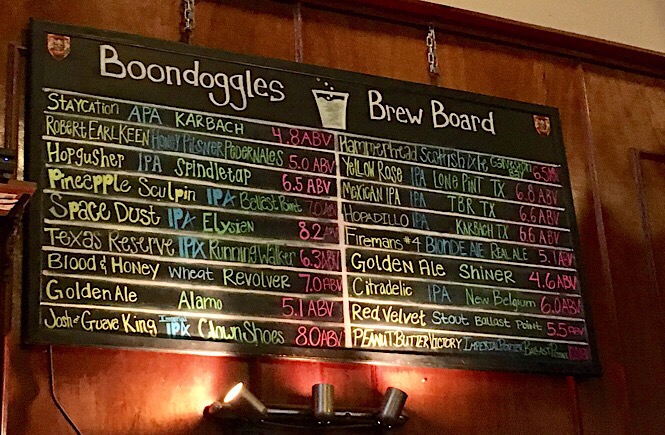 Boondoggles Brew Board
Staycation APA Karbach 4.8 ABV
Robert Earl Keen Honey Pilsner Pedernales 5.0 ABV
Horgusher IPA Spindletap 6.5 ABV
Pineapple Sculpin IPA Ballast Point 7.0 ABV
Space Dust IPA Elysian 8.2 ABV
Texas Reserve IPA Running Walker 6.3 ABV
Blood & Honey Wheat Revolver 7.0 ABV
Golden Ale Alamo 5.1 ABV
Josh of Grueve King IPA Clown Shoes 8.0 ABV
Hammerhead Scottish Ale Galveston Bay 6.5 ABV
Yellow Rose IPA Lone Pint TX 6.8 ABV
Mexican IPA TBR TX 6.6 ABV
Hopadillo IPA Karbach TX 6.6 ABV
Firemans #4 Blonde Ale Real Ale 5.1 ABV
Golden Ale Shiner 4.6 ABV
Citradelic IPA New Belgium 6.0 ABV
Red Velvet Stout Ballast Point 5.5 ABV
Peanut Butter Victory Imperial Porter Ballast Point